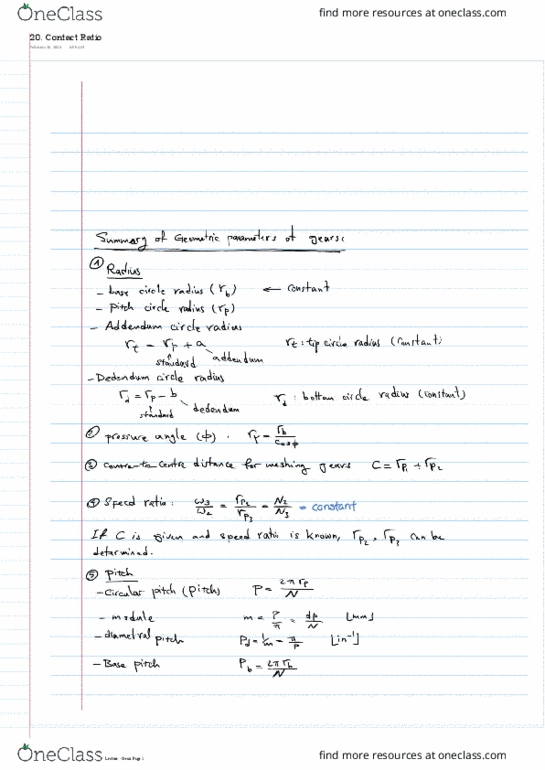 OneClass find more resources at oneclass.com
20. Contact Ratio
Summary of Geometric parameters of gears:
① Radius
- base circle radius (r_b) ← constant
- pitch circle radius (r_p)
- Addendum circle radius
r_t = r_p + a r_t: tip circle radius (constant)
standard addendum
- Dedendum circle radius
r_d = r_p - b r_d: bottom circle radius (constant)
standard dedendum
② pressure angle (φ). r_p = r_b / cosφ
③ centre-to-centre distance for meshing gears C = r_p1 + r_p2
④ Speed ratio: ω_3/ω_2 = r_p2/r_p3 = N_2/N_3 = constant
If C is given and speed ratio is known, r_p2, r_p3 can be
determined.
⑤ Pitch
- Circular pitch (Pitch) P = 2π r_p / N
- module m = P/π = dp/N [mm]
- diametral pitch P_d = 1/m = π/P [in⁻¹]
- Base pitch P_b = 2π r_b / N
OneClass find more resources at oneclass.com